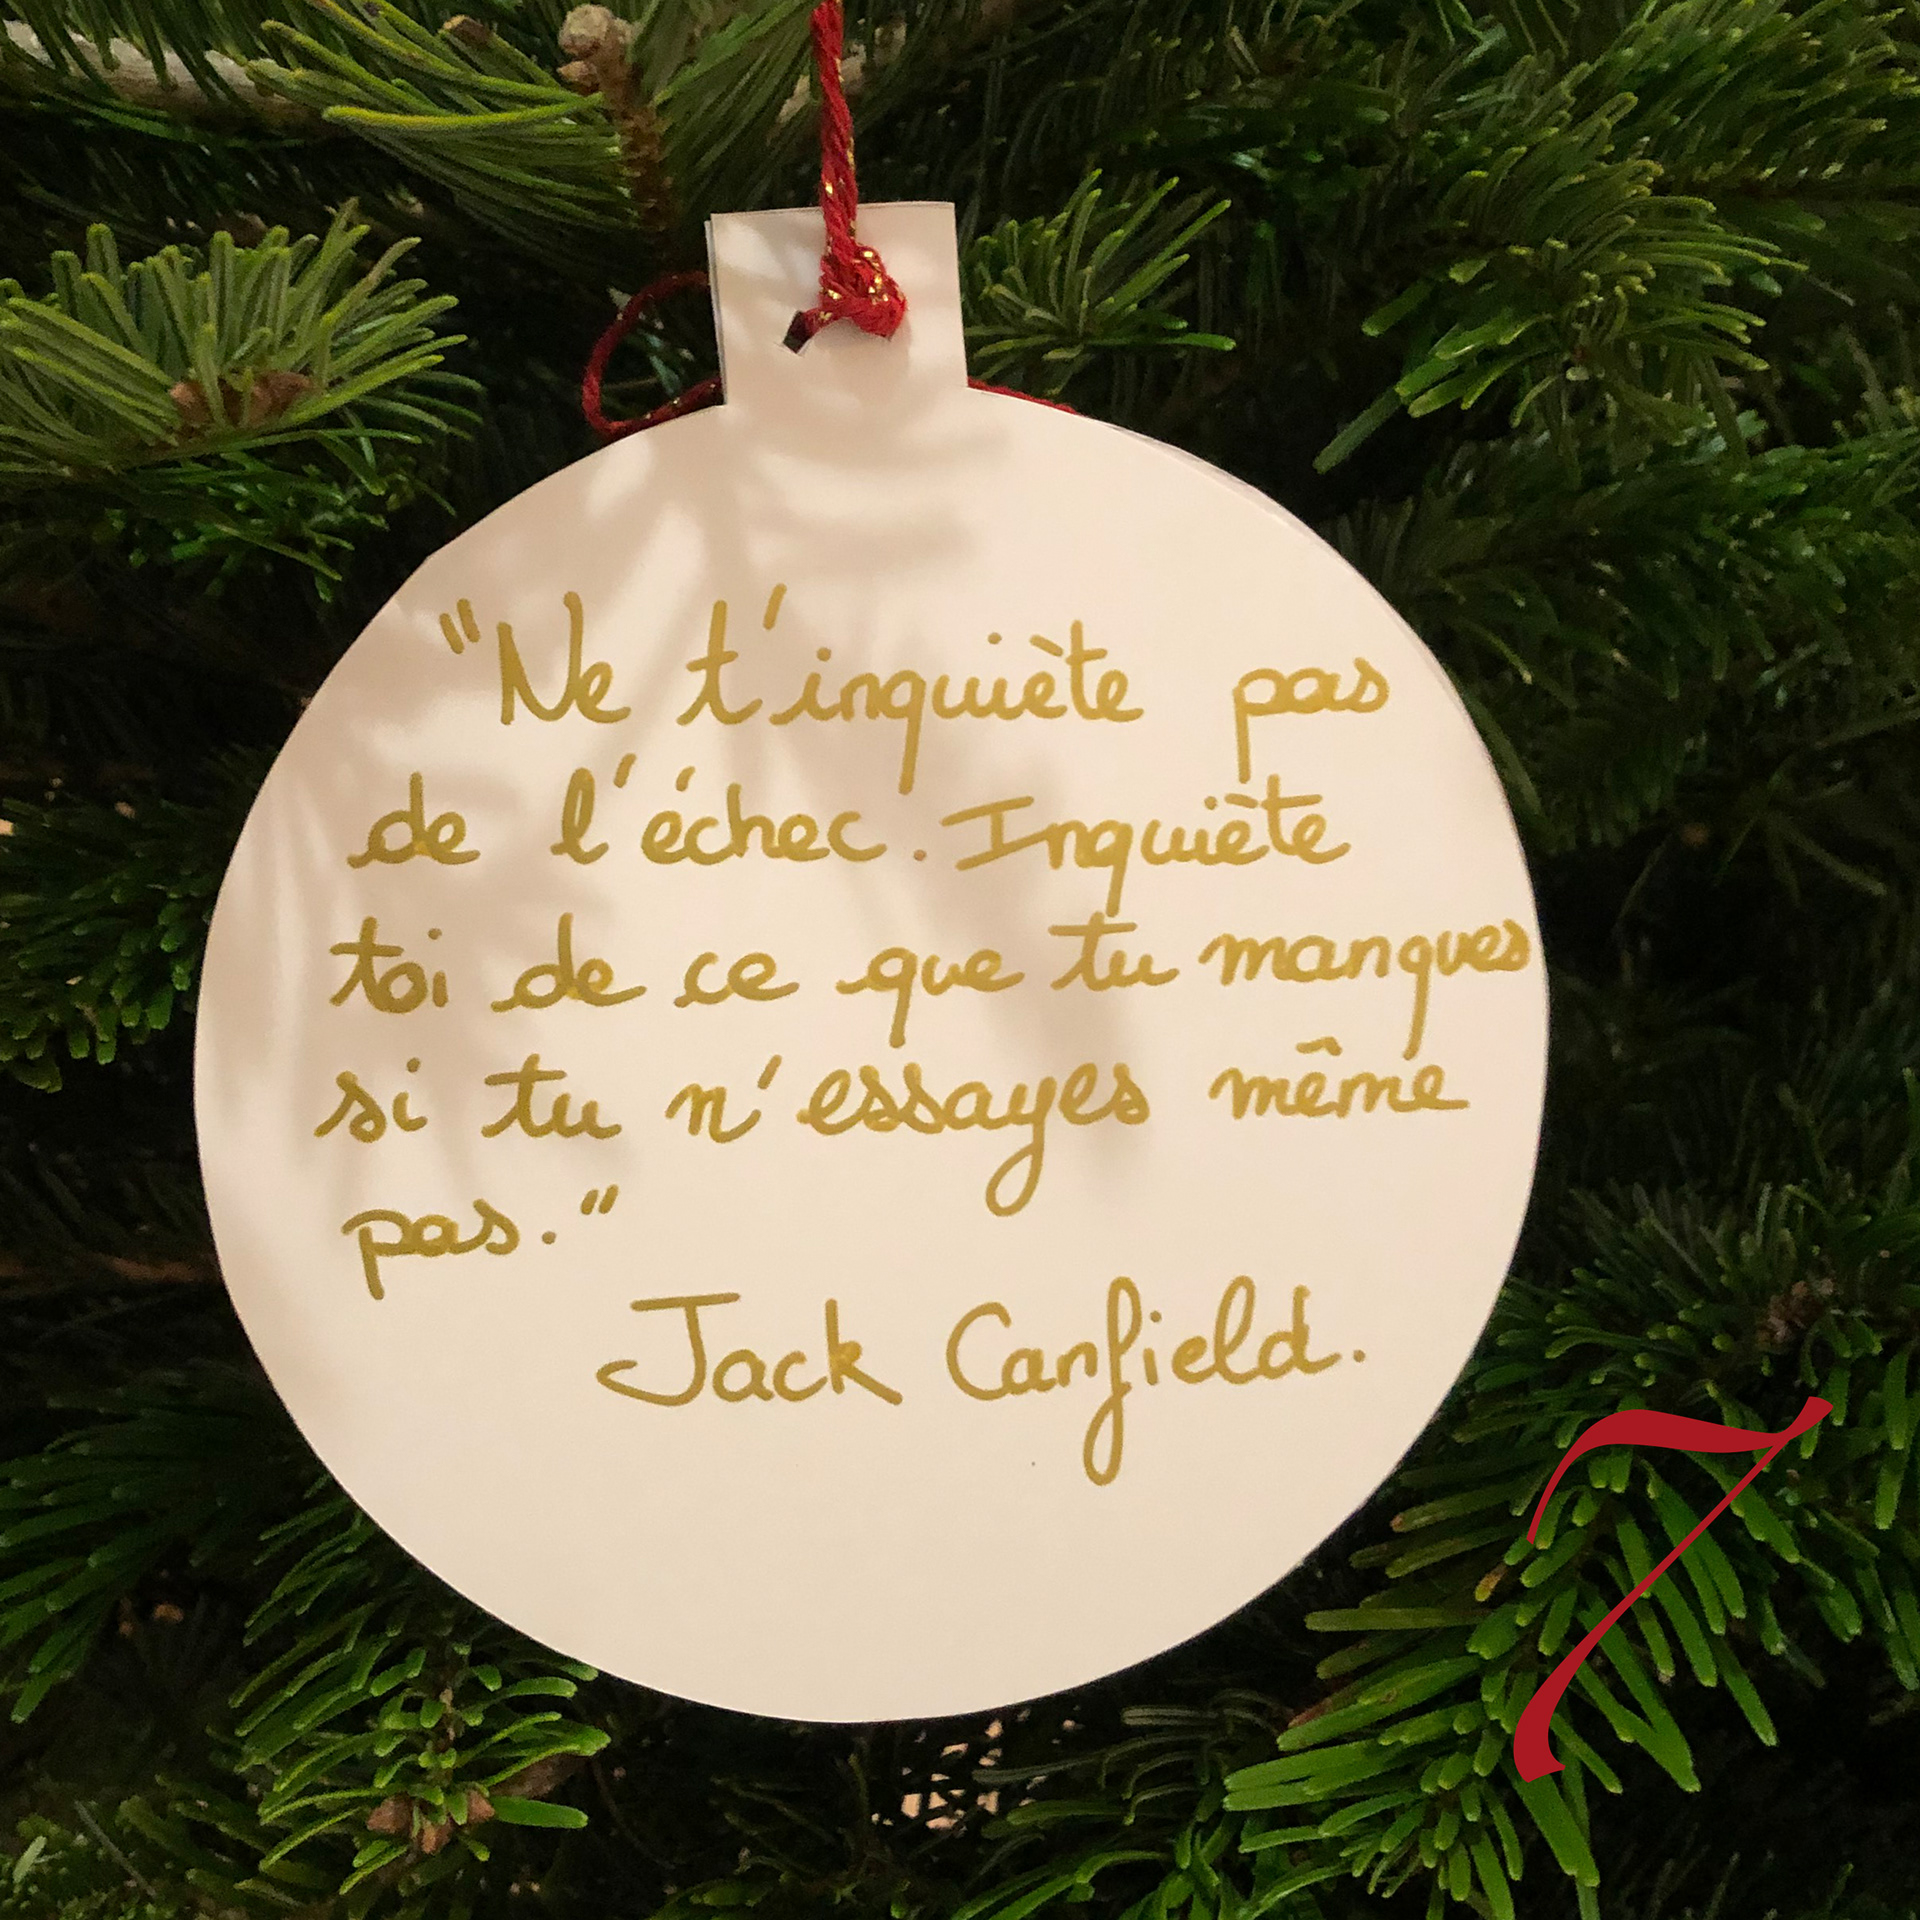 "Ne t'inquiète pas
de l'échec. Inquiète
toi de ce que tu manques
si tu n'essayes même
pas."
Jack Canfield.
7